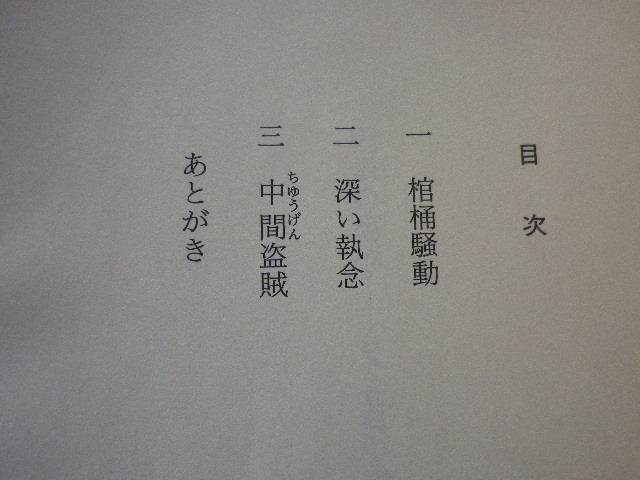 目次
一 棺桶騒動
二 深い執念
三 中間盗賊
ちゅうげん
あとがき